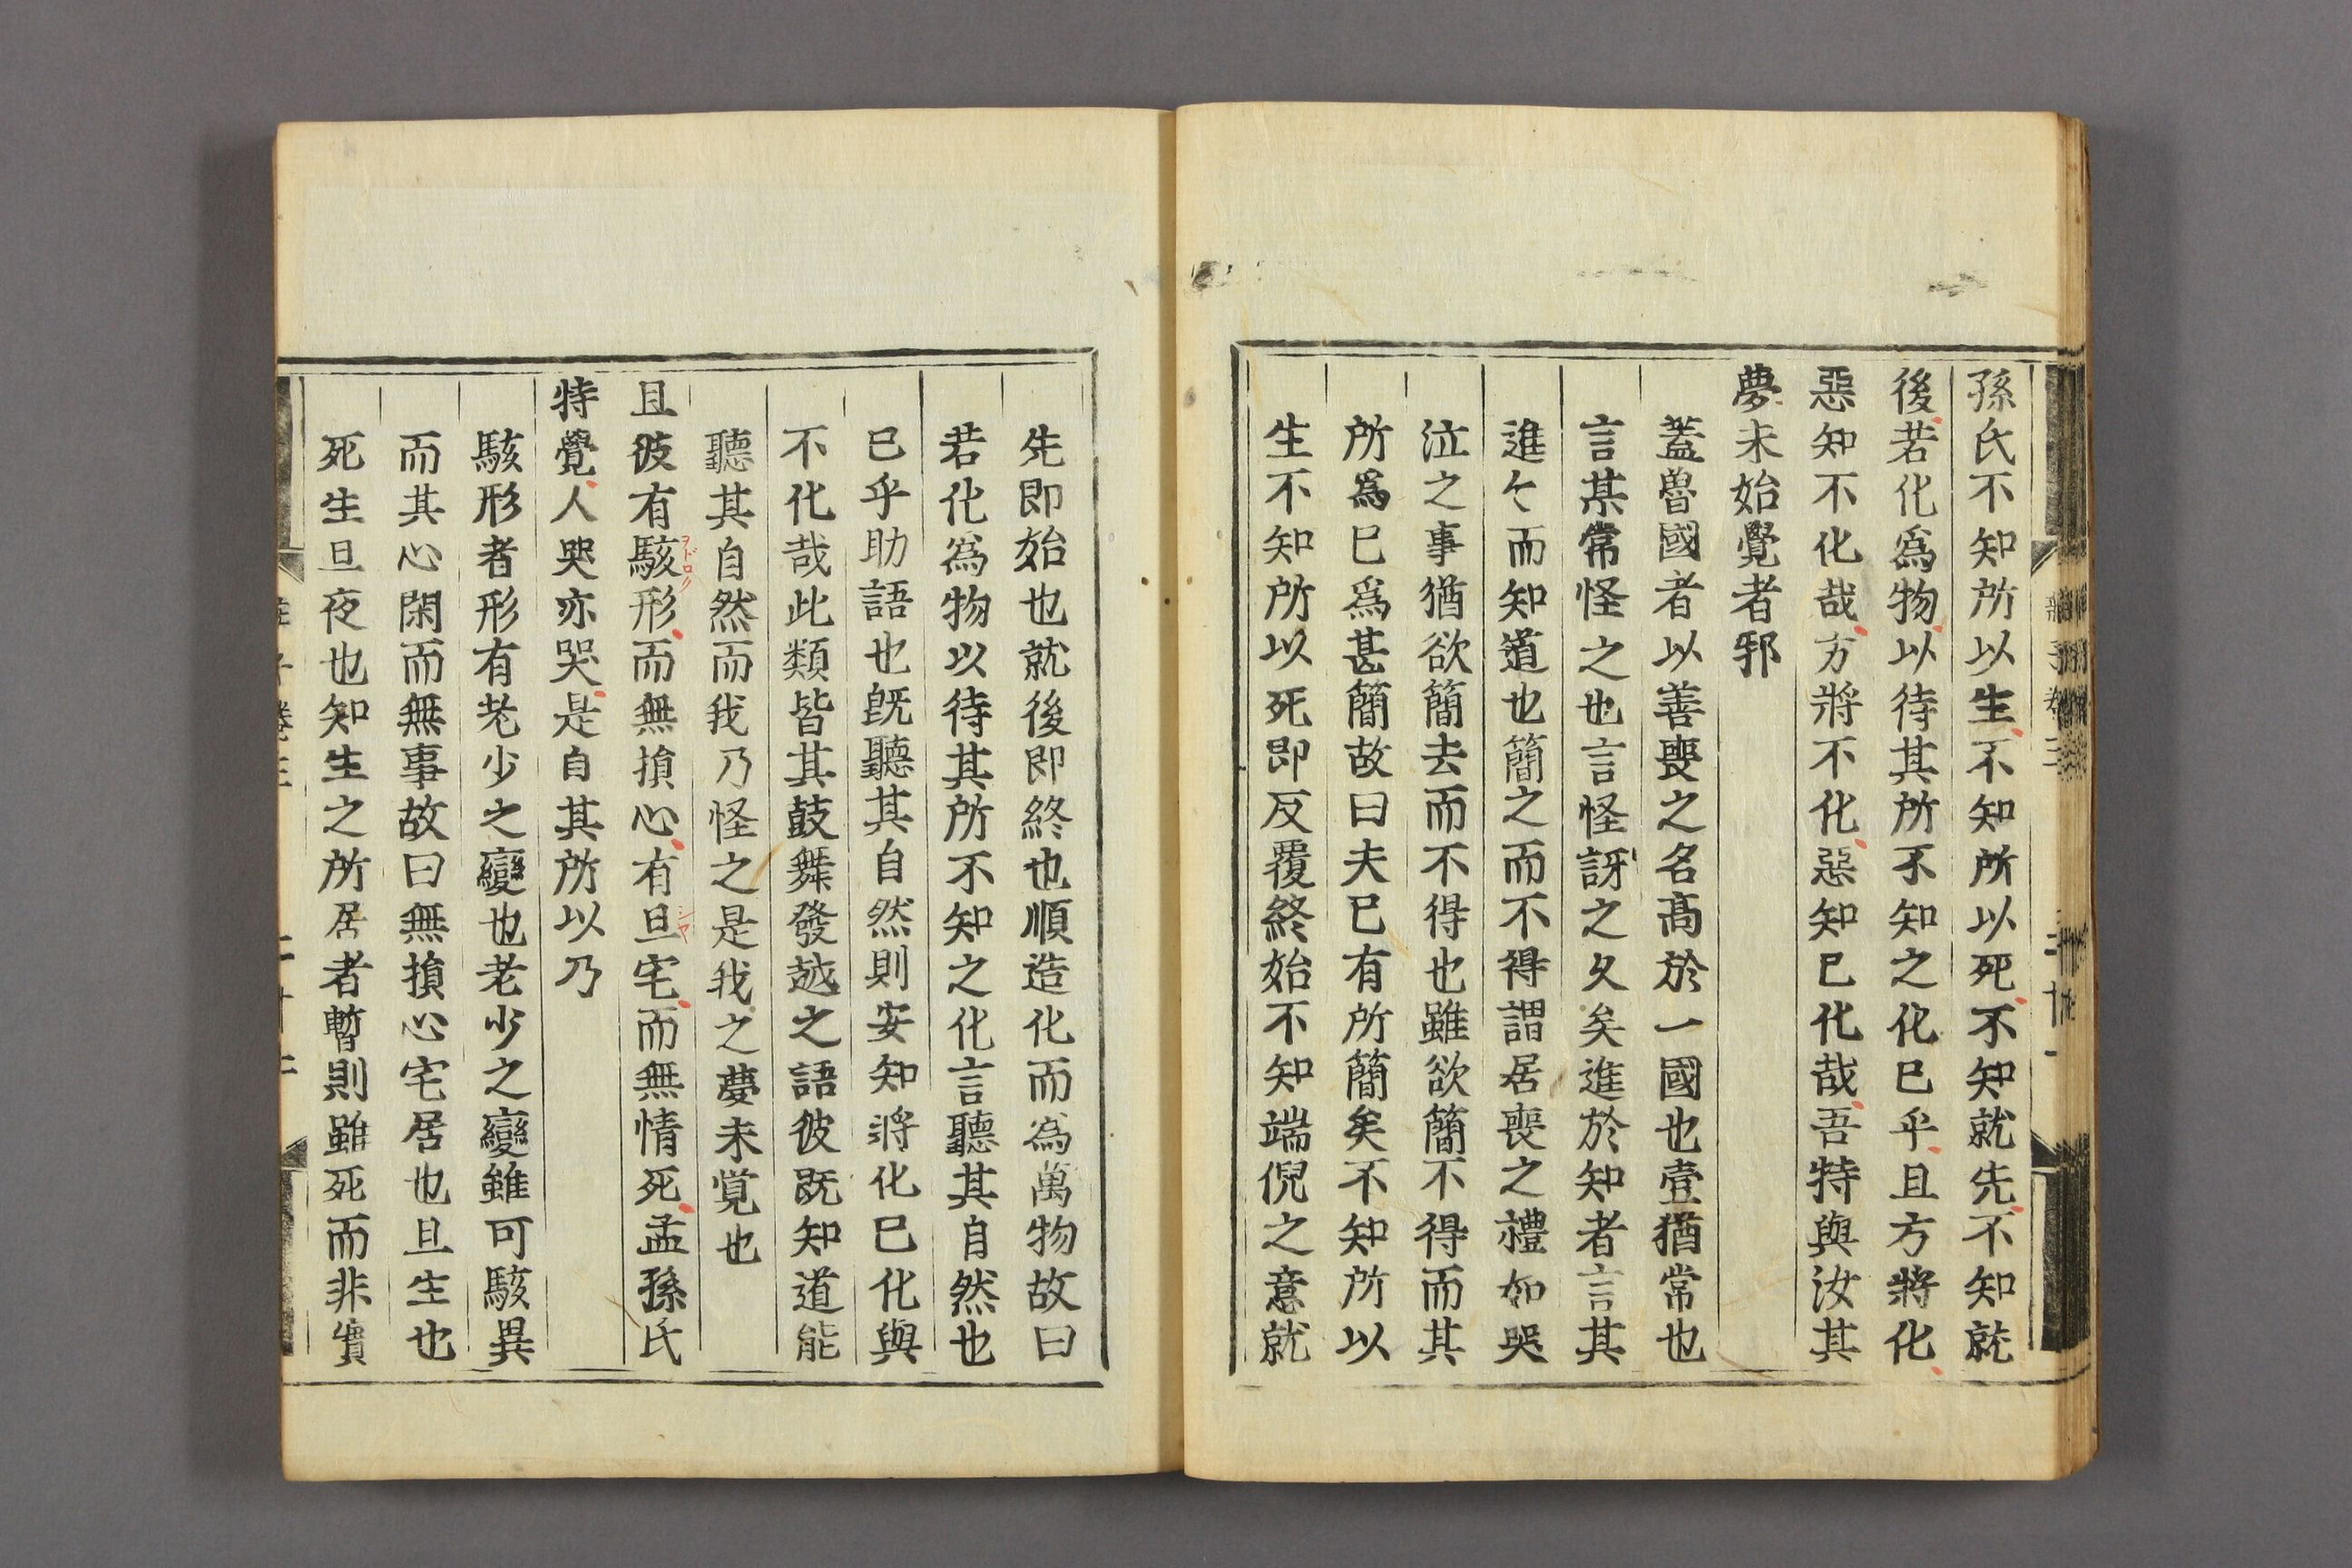 孫氏不知所以生不知所以死不知就先不知就
後若化爲物以待其所不知之化已乎且方將化
惡知不化哉方將不化惡知已化哉吾特與汝其
夢未始覺者邪
蓋魯國者以善喪之名高於一國也壹猶常也
言某常怪之也言怪訝之久矣進於知者言其
進〻而知道也簡之而不得謂居喪之禮如哭
泣之事猶欲簡去而不得也雖欲簡不得而其
所爲已爲甚簡故曰夫已有所簡矣不知所以
生不知所以死即反覆終始不知端倪之意就
先即始也就後即終也順造化而爲萬物故曰
若化爲物以待其所不知之化言聽其自然也
已乎助語也旣聽其自然則安知將化已化與
不化哉此類皆其鼓舞發越之語彼旣知道能
聽其自然而我乃怪之是我之夢未覚也
且彼有駭形而無損心有旦宅而無情死孟孫氏
ヲドロク
シヤ
特覺人哭亦哭是自其所以乃
駭形者形有老少之變也老少之變雖可駭異
而其心閑而無事故曰無損心宅居也旦生也
死生旦夜也知生之所居者暫則雖死而非實